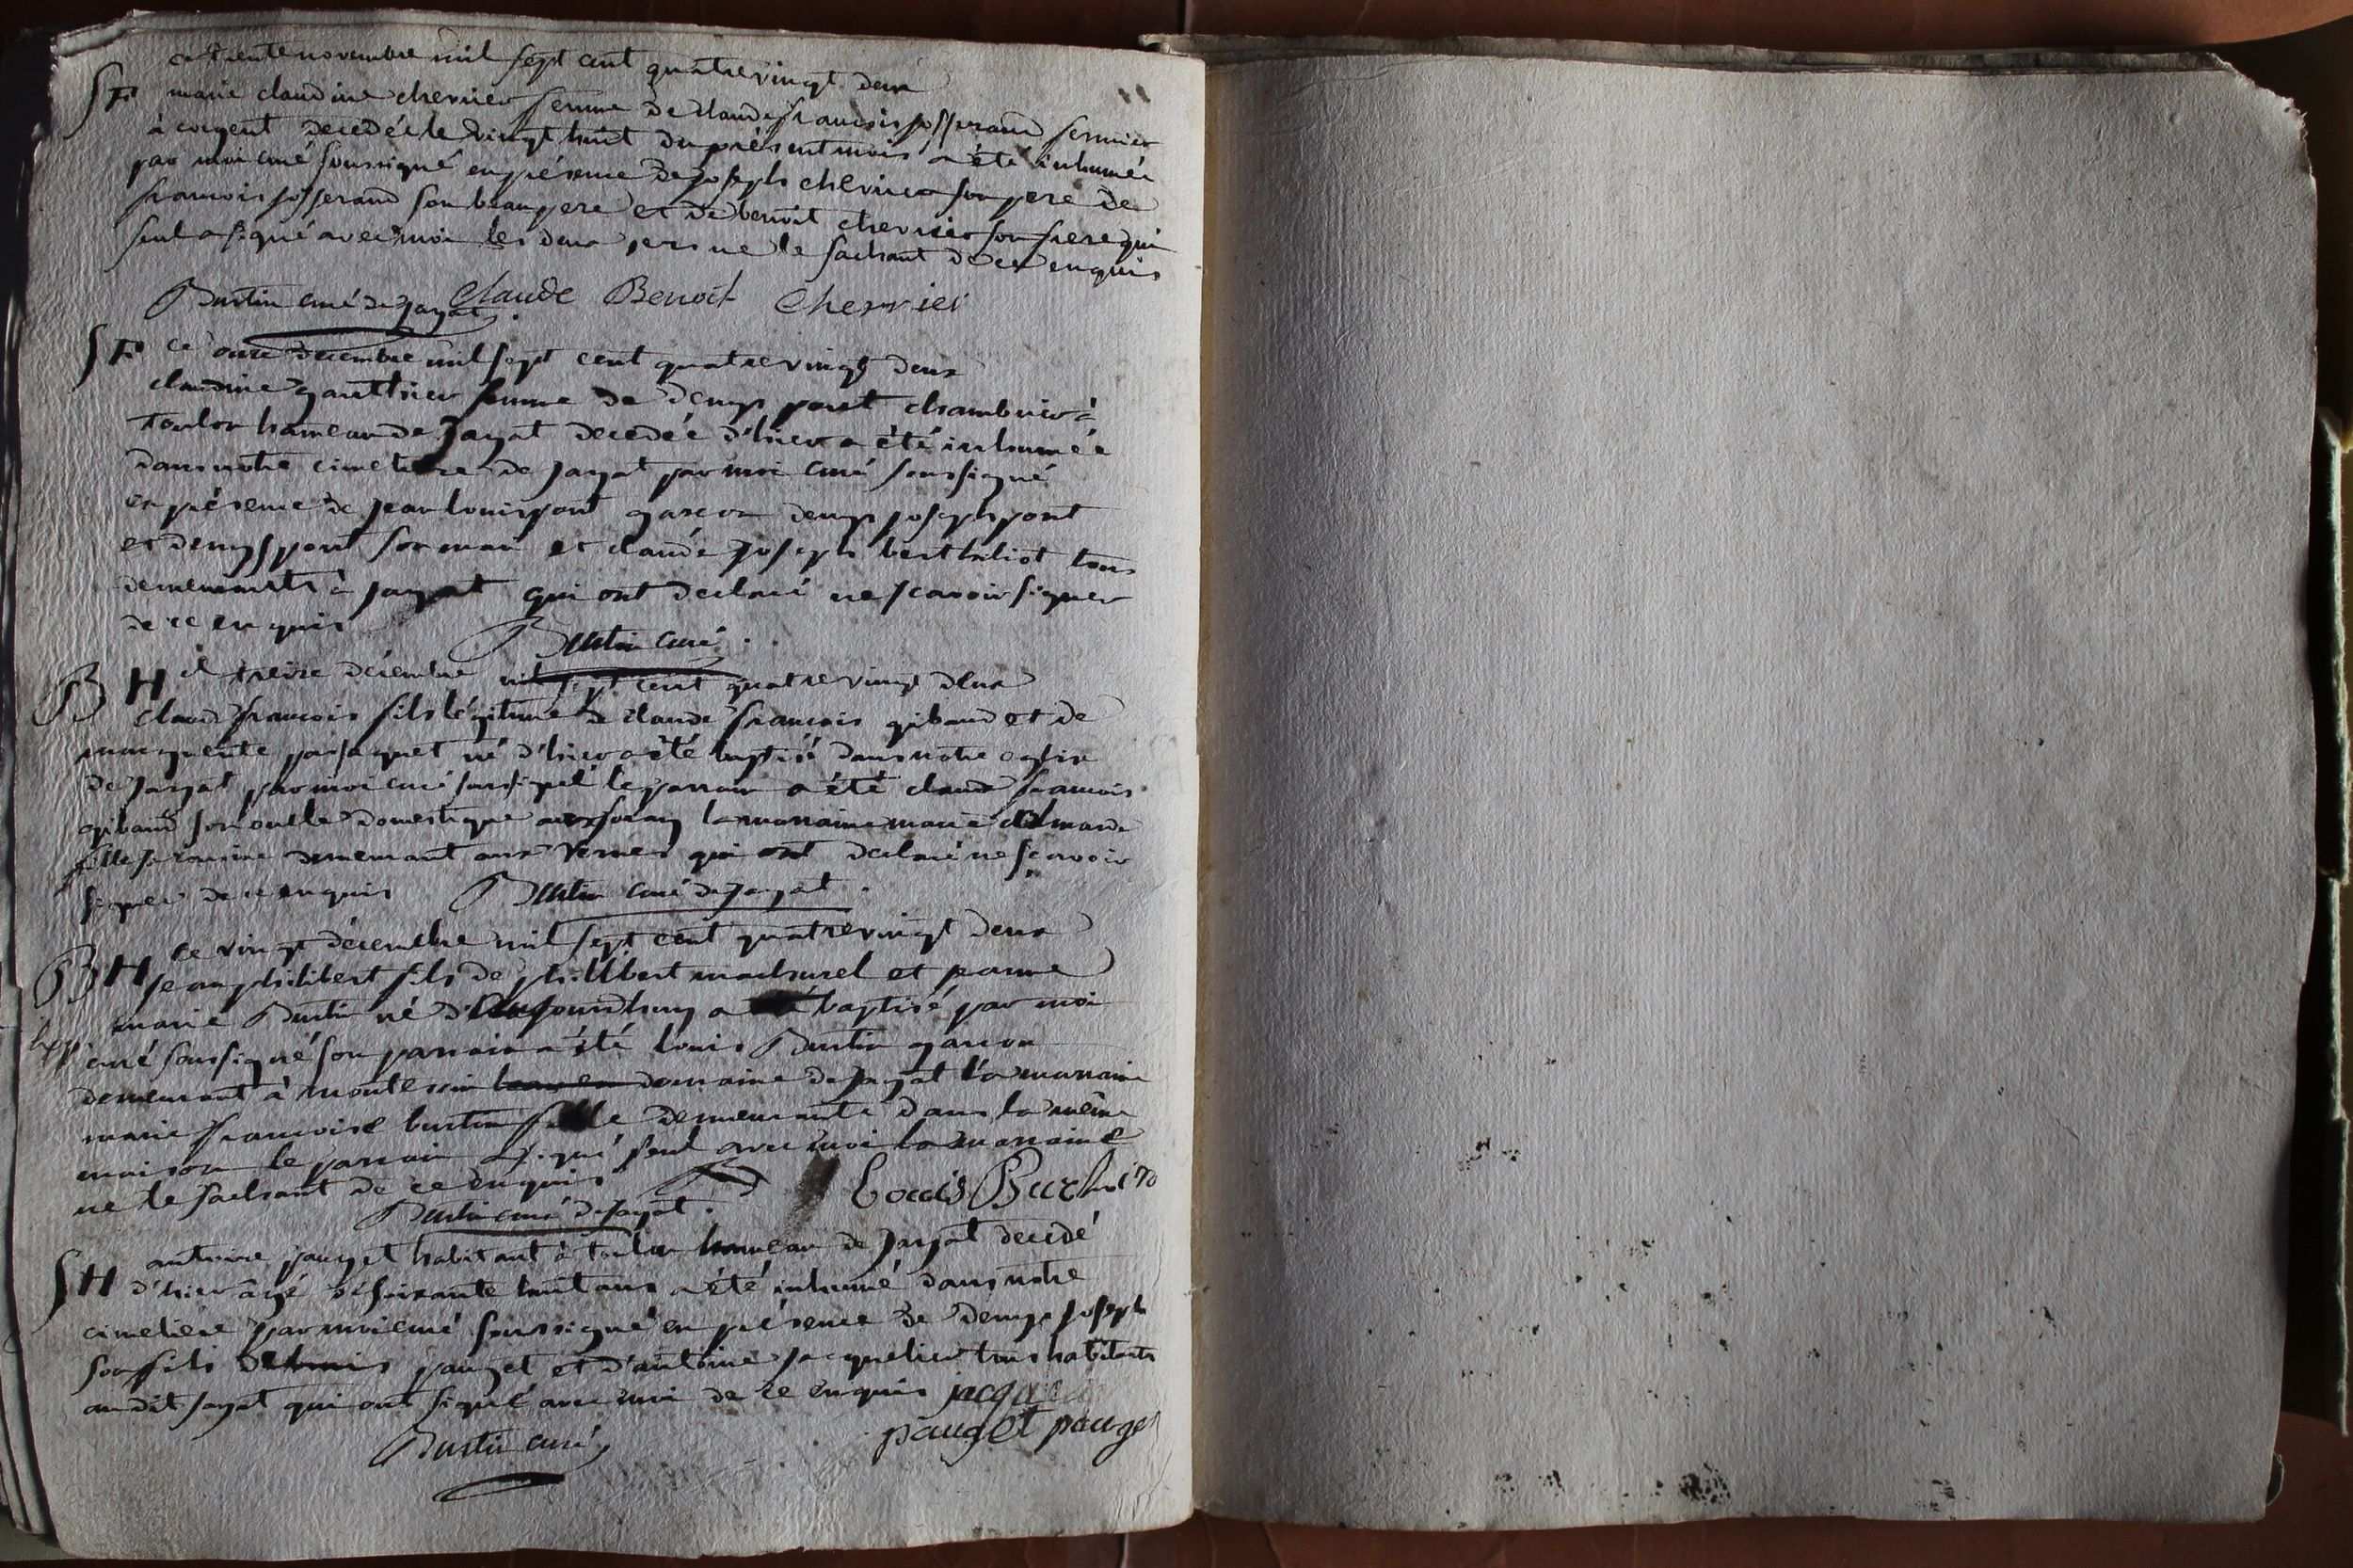 ce trente novembre mil sept cent quatre vingt deux
SF marie claudine chervier femme de claude francois josserand fermier
à cocgent decedée le vingt huit du présent mois a été inhumée
par moi curé soussigné en présence de joseph chervier son pere de
francois josserand son beaupere et de benoit chervier son frere qui
seul a signé avec moi les deux peres ne le sachant de ce enquis
Burtin curé de jayat Claude Benoit Chervier
SF ce onze decembre mil sept cent quatre vingt deux
claudine gauthier femme de denys pont chambrier à
toulon hameau de Jayat decedée d'hier a été inhumée
dans notre cimetiere de jayat par moi curé soussigné
en présence de jean louis pont garcon denys joseph pont
et denys pont son mari et claude joseph berthiliot tous
demeurants à jayat qui ont declaré ne scavoir signer
de ce enquis Burtin curé
BH ce treize décembre mil sept cent quatre vingt deux
claude francois fils légitime de claude francois gibaud et de
marguerite né d'hier a été baptisé dans notre eglise
de jayat par moi curé soussigné le parrain a été claude francois
gibaud son oncle domestique la marraine marie
fille sa cousine demeurant aux vernes qui ont declaré ne scavoir
signer de ce enquis Burtin curé de jayat
BH ce vingt décembre mil sept cent quatre vingt deux
jean philibert fils de philibert machurel et jeanne
marie Burtin né d'aujourdhuy a été baptisé par moi
curé soussigné son parrain a été louis Burtin garcon
demeurant à montessuin domaine de jayat la marraine
marie francoise burtin fille demeurante dans la même
maison le parrain a signé seul avec moi la marraine
ne le sachant de ce enquis Louis Burtin
Burtin curé de jayat
SH antoine pauget habitant à toulon hameau de jayat decedé
d'hier agé de soixante huit ans a été inhumé dans notre
cimetiere par moi curé soussigné en présence de denys joseph
son fils pauget et d'antoine jacquelier tous habitants
au dit jayat qui ont signé avec moi de ce enquis
pauget pauget
Burtin curé